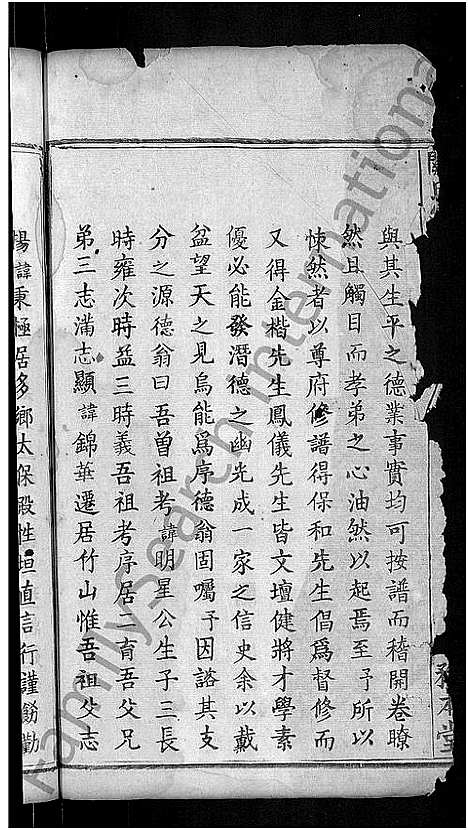 與其生平之德業事實均可按譜而稽開卷瞭
然且觸目而孝弟之心油然以起焉至予所以
悚然者以尊府修譜得保和先生倡爲督修而
又得金楷先生鳳儀先生皆文壇健將才學素
優必能發潛德之幽光成一家之信史余以戴
盆望天之見烏能爲序德翁固囑予因諮其支
分之源德翁曰吾曾祖考諱明星公生子三長
時雍次時益三時義吾祖考序居二育吾父兄
弟三志滿志顯諱錦華遷居竹山惟吾祖父志
楊諱秉極居多鄉太保殿性坦直言行謹飭勤
堂
FamilySearch International